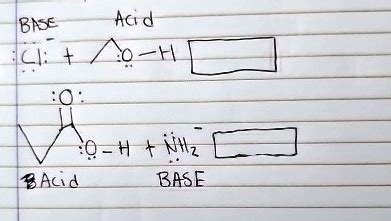 BASE Acid
:Cl:⁻ + O-H
:O:
:O-H + NH₂⁻
Acid BASE